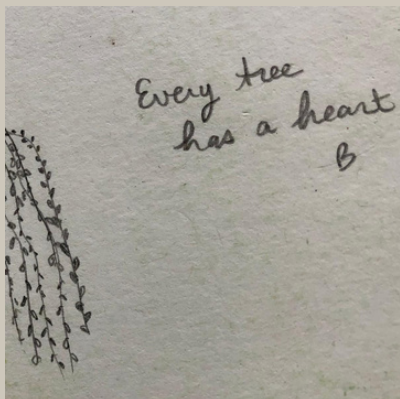 Every tree
has a heart
B